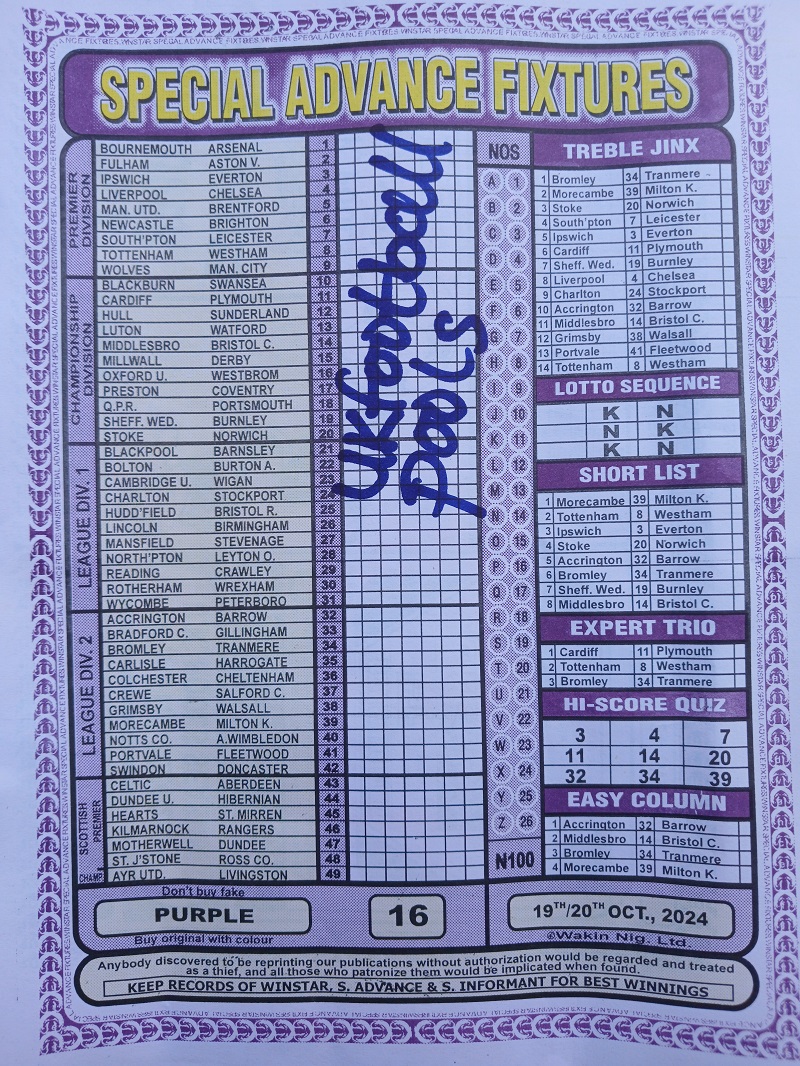 SPECIAL ADVANCE FIXTURES
PREMIER DIVISION
BOURNEMOUTH ARSENAL 1
FULHAM ASTON V. 2
IPSWICH EVERTON 3
LIVERPOOL CHELSEA 4
MAN. UTD. BRENTFORD 5
NEWCASTLE BRIGHTON 6
SOUTH'PTON LEICESTER 7
TOTTENHAM WESTHAM 8
WOLVES MAN. CITY 9
CHAMPIONSHIP DIVISION
BLACKBURN SWANSEA 10
CARDIFF PLYMOUTH 11
HULL SUNDERLAND 12
LUTON WATFORD 13
MIDDLESBRO BRISTOL C. 14
MILLWALL DERBY 15
OXFORD U. WESTBROM 16
PRESTON COVENTRY 17
Q.P.R. PORTSMOUTH 18
SHEFF. WED. BURNLEY 19
STOKE NORWICH 20
LEAGUE DIV. 1
BLACKPOOL BARNSLEY 21
BOLTON BURTON A. 22
CAMBRIDGE U. WIGAN 23
CHARLTON STOCKPORT 24
HUDD'FIELD BRISTOL R. 25
LINCOLN BIRMINGHAM 26
MANSFIELD STEVENAGE 27
NORTH'PTON LEYTON O. 28
READING CRAWLEY 29
ROTHERHAM WREXHAM 30
WYCOMBE PETERBORO 31
LEAGUE DIV. 2
ACCRINGTON BARROW 32
BRADFORD C. GILLINGHAM 33
BROMLEY TRANMERE 34
CARLISLE HARROGATE 35
COLCHESTER CHELTENHAM 36
CREWE SALFORD C. 37
GRIMSBY WALSALL 38
MORECAMBE MILTON K. 39
NOTTS CO. A.WIMBLEDON 40
PORTVALE FLEETWOOD 41
SWINDON DONCASTER 42
SCOTTISH PREMIER
CELTIC ABERDEEN 43
DUNDEE U. HIBERNIAN 44
HEARTS ST. MIRREN 45
KILMARNOCK RANGERS 46
MOTHERWELL DUNDEE 47
ST. J'STONE ROSS CO. 48
CHAMP.
AYR UTD. LIVINGSTON 49
UK football
pools
NOS
A 1
B 2
C 3
D 4
E 5
F 6
G 7
H 8
I 9
J 10
K 11
L 12
M 13
N 14
O 15
P 16
Q 17
R 18
S 19
T 20
U 21
V 22
W 23
X 24
Y 25
Z 26
N100
TREBLE JINX
1 Bromley 34 Tranmere
2 Morecambe 39 Milton K.
3 Stoke 20 Norwich
4 South'pton 7 Leicester
5 Ipswich 3 Everton
6 Cardiff 11 Plymouth
7 Sheff. Wed. 19 Burnley
8 Liverpool 4 Chelsea
9 Charlton 24 Stockport
10 Accrington 32 Barrow
11 Middlesbro 14 Bristol C.
12 Grimsby 38 Walsall
13 Portvale 41 Fleetwood
14 Tottenham 8 Westham
LOTTO SEQUENCE
K N
N K
K N
SHORT LIST
1 Morecambe 39 Milton K.
2 Tottenham 8 Westham
3 Ipswich 3 Everton
4 Stoke 20 Norwich
5 Accrington 32 Barrow
6 Bromley 34 Tranmere
7 Sheff. Wed. 19 Burnley
8 Middlesbro 14 Bristol C.
EXPERT TRIO
1 Cardiff 11 Plymouth
2 Tottenham 8 Westham
3 Bromley 34 Tranmere
HI-SCORE QUIZ
3 4 7
11 14 20
32 34 39
EASY COLUMN
1 Accrington 32 Barrow
2 Middlesbro 14 Bristol C.
3 Bromley 34 Tranmere
4 Morecambe 39 Milton K.
Don't buy fake
PURPLE
Buy original with colour
16
19TH/20TH OCT., 2024
©Wakin Nig. Ltd.
Anybody discovered to be reprinting our publications without authorization would be regarded and treated
as a thief, and all those who patronize them would be implicated when found.
KEEP RECORDS OF WINSTAR, S. ADVANCE & S. INFORMANT FOR BEST WINNINGS